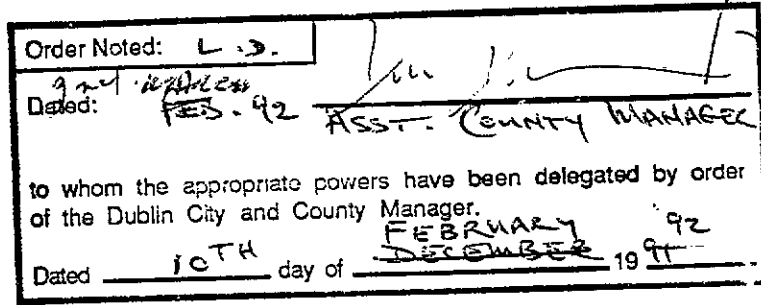 Order Noted: L.D.
Dated: FEB. 92
ASST. COUNTY MANAGER
to whom the appropriate powers have been delegated by order
of the Dublin City and County Manager.
FEBRUARY 92
Dated 10TH day of DECEMBER 19 91